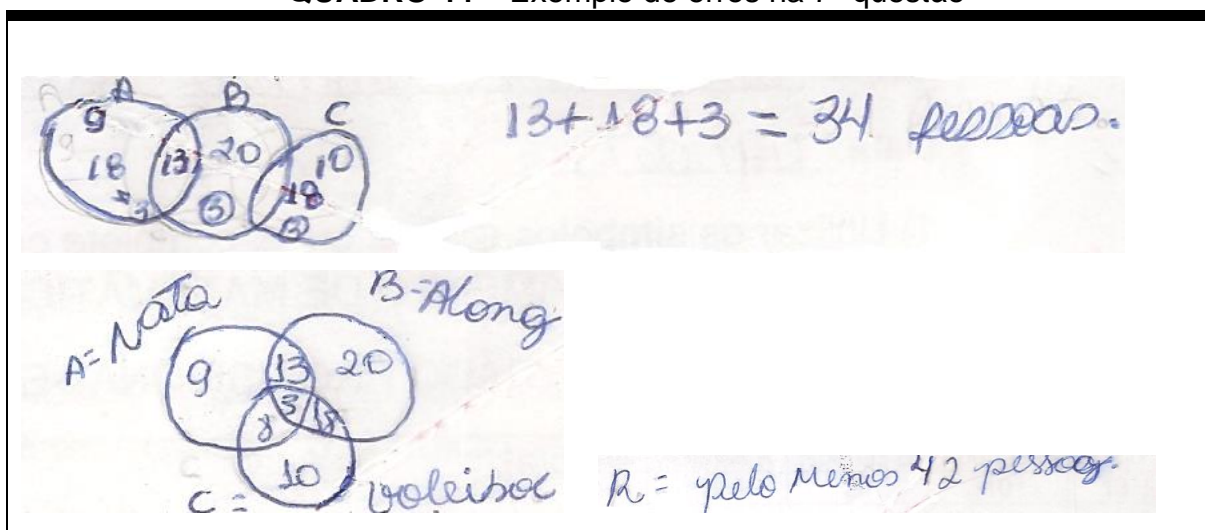 A B C
9
18 13 20 10
3 3 18
3
13+18+3 = 34 pessoas.
A= Nata B=Along
9 13 20
3
8 18
10
C = voleibol
R = pelo menos 42 pessoas.